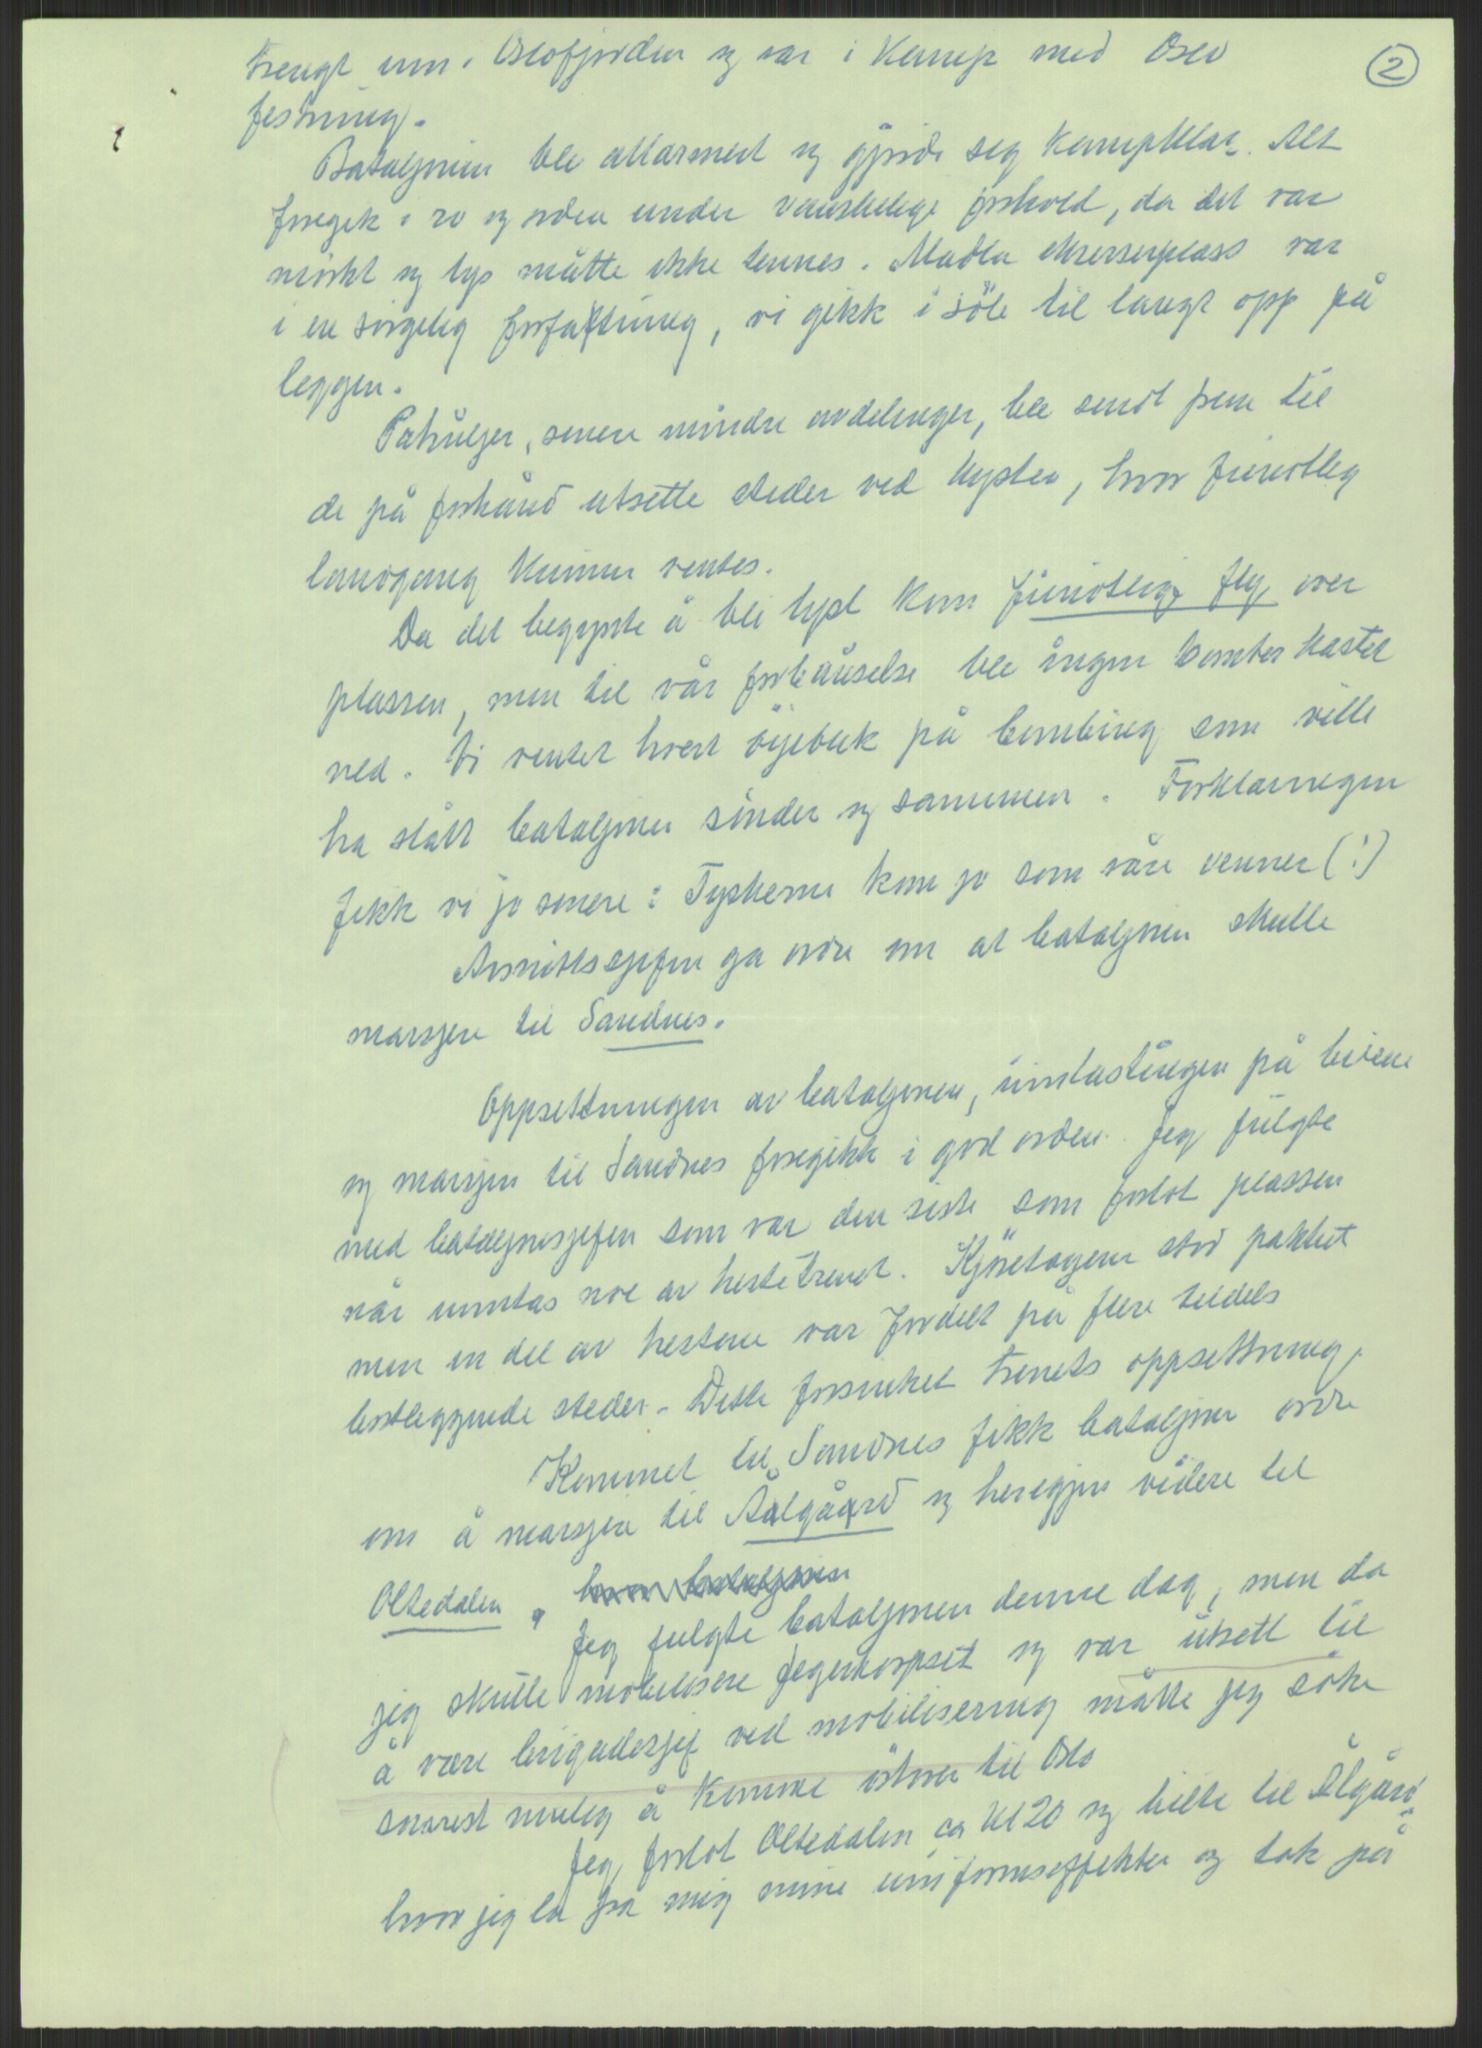 2
trengt inn i Oslofjorden og var i kamp med Oscb
festning.
Bataljonen ble allarmert og gjorde seg kampklar. Alt
foregik i ro og orden under vanskelige forhold, da det var
mørkt og lys måtte ikke tennes. Madla ekserserplass var
i en sørgelig forfatning, vi gikk i söle til langt opp på
leggen.
Patruljer, senere mindre avdelinger, ble sendt frem til
de på forhånd utsette steder ved kysten, hvor fiendtlig
landgang kunne ventes.
Da det begynte å bli lyst kom fiendtlige fly over
plassen, men til vår forbauselse ble ingen bomber kastet
ned. Vi ventet hvert öyeblik på bombing som ville
ha slått bataljonen sönder og sammen. Forklaringen
fikk vi jo senere: Tyskerne kom jo som våre venner (!)
Avsnittssjefen ga ordre om at bataljonen skulle
marsjere til Sandnes.
Oppsettningen av bataljonen, innlastingen på bilene
og marsjen til Sandnes foregikk i god orden. Jeg fulgte
med bataljonssjefen som var den siste som forlot plassen
når unntas noe av hestetrenet. Kjöretøyene stod pakket
men en del av hestene var fordelt på flere tildels
bortliggende steder. Dette forsinket trenets oppsettning.
Kommet til Sandnes fikk bataljonen ordre
om å marsjere til Ålgård og herigjen videre til
Oltedalen. hvor bataljonen
Jeg fulgte bataljonen denne dag, men da
jeg skulle mobilisere Jegerkorpset og var utsett til
å være brigadesjef ved mobilisering måtte jeg söke
snarest mulig å komme östover til Oslo
Jeg forlot Oltedalen ca kl 20 og bilte til Ålgård
hvor jeg la fra mig mine uniformseffekter og tok på